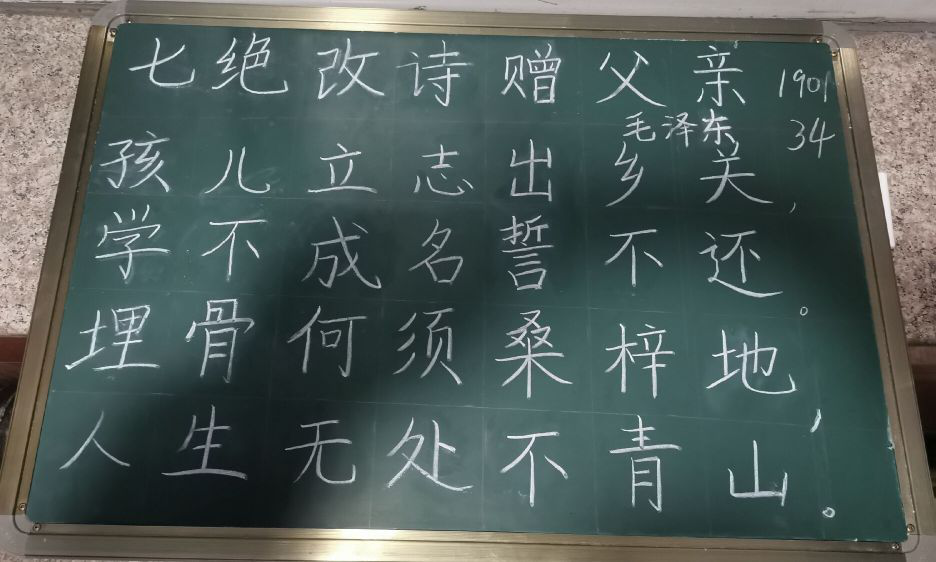 七绝改诗赠父亲 1901
毛泽东 34
孩儿立志出乡关，
学不成名誓不还。
埋骨何须桑梓地，
人生无处不青山。